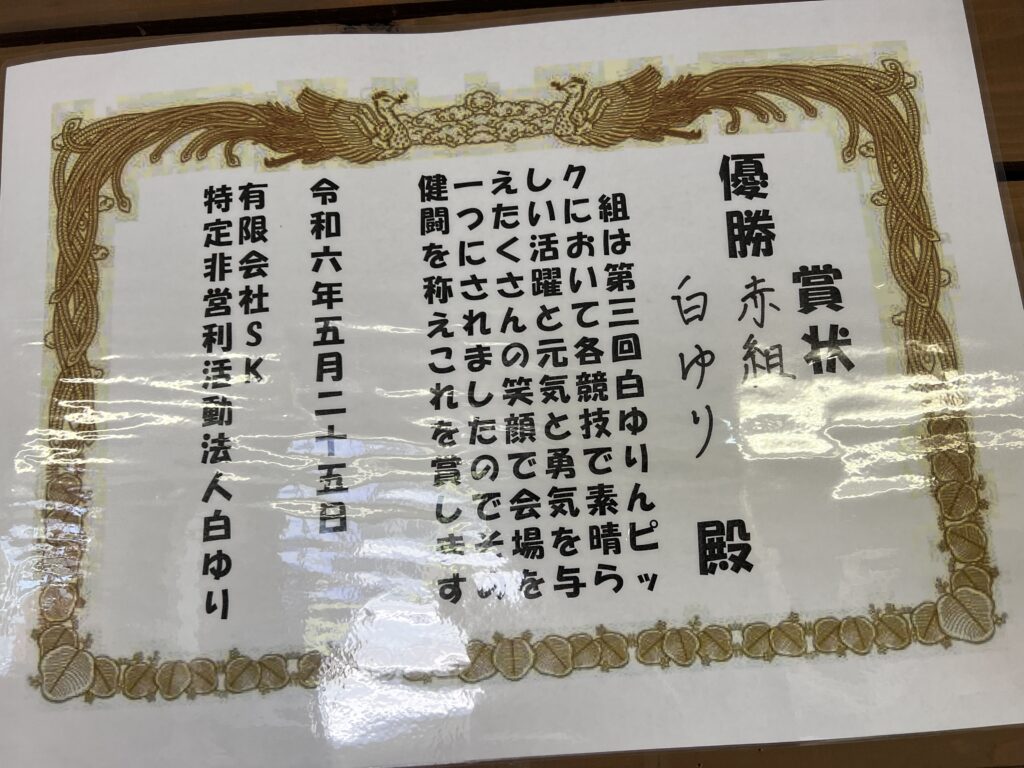 賞状
優勝 赤組
白ゆり 殿
組は第三回白ゆりんピッ
クにおいて各競技で素晴ら
しい活躍と元気と勇気を与
えたくさんの笑顔で会場を
一つにされましたのでその
健闘を称えこれを賞します
令和六年五月二十五日
有限会社SK
特定非営利活動法人白ゆり